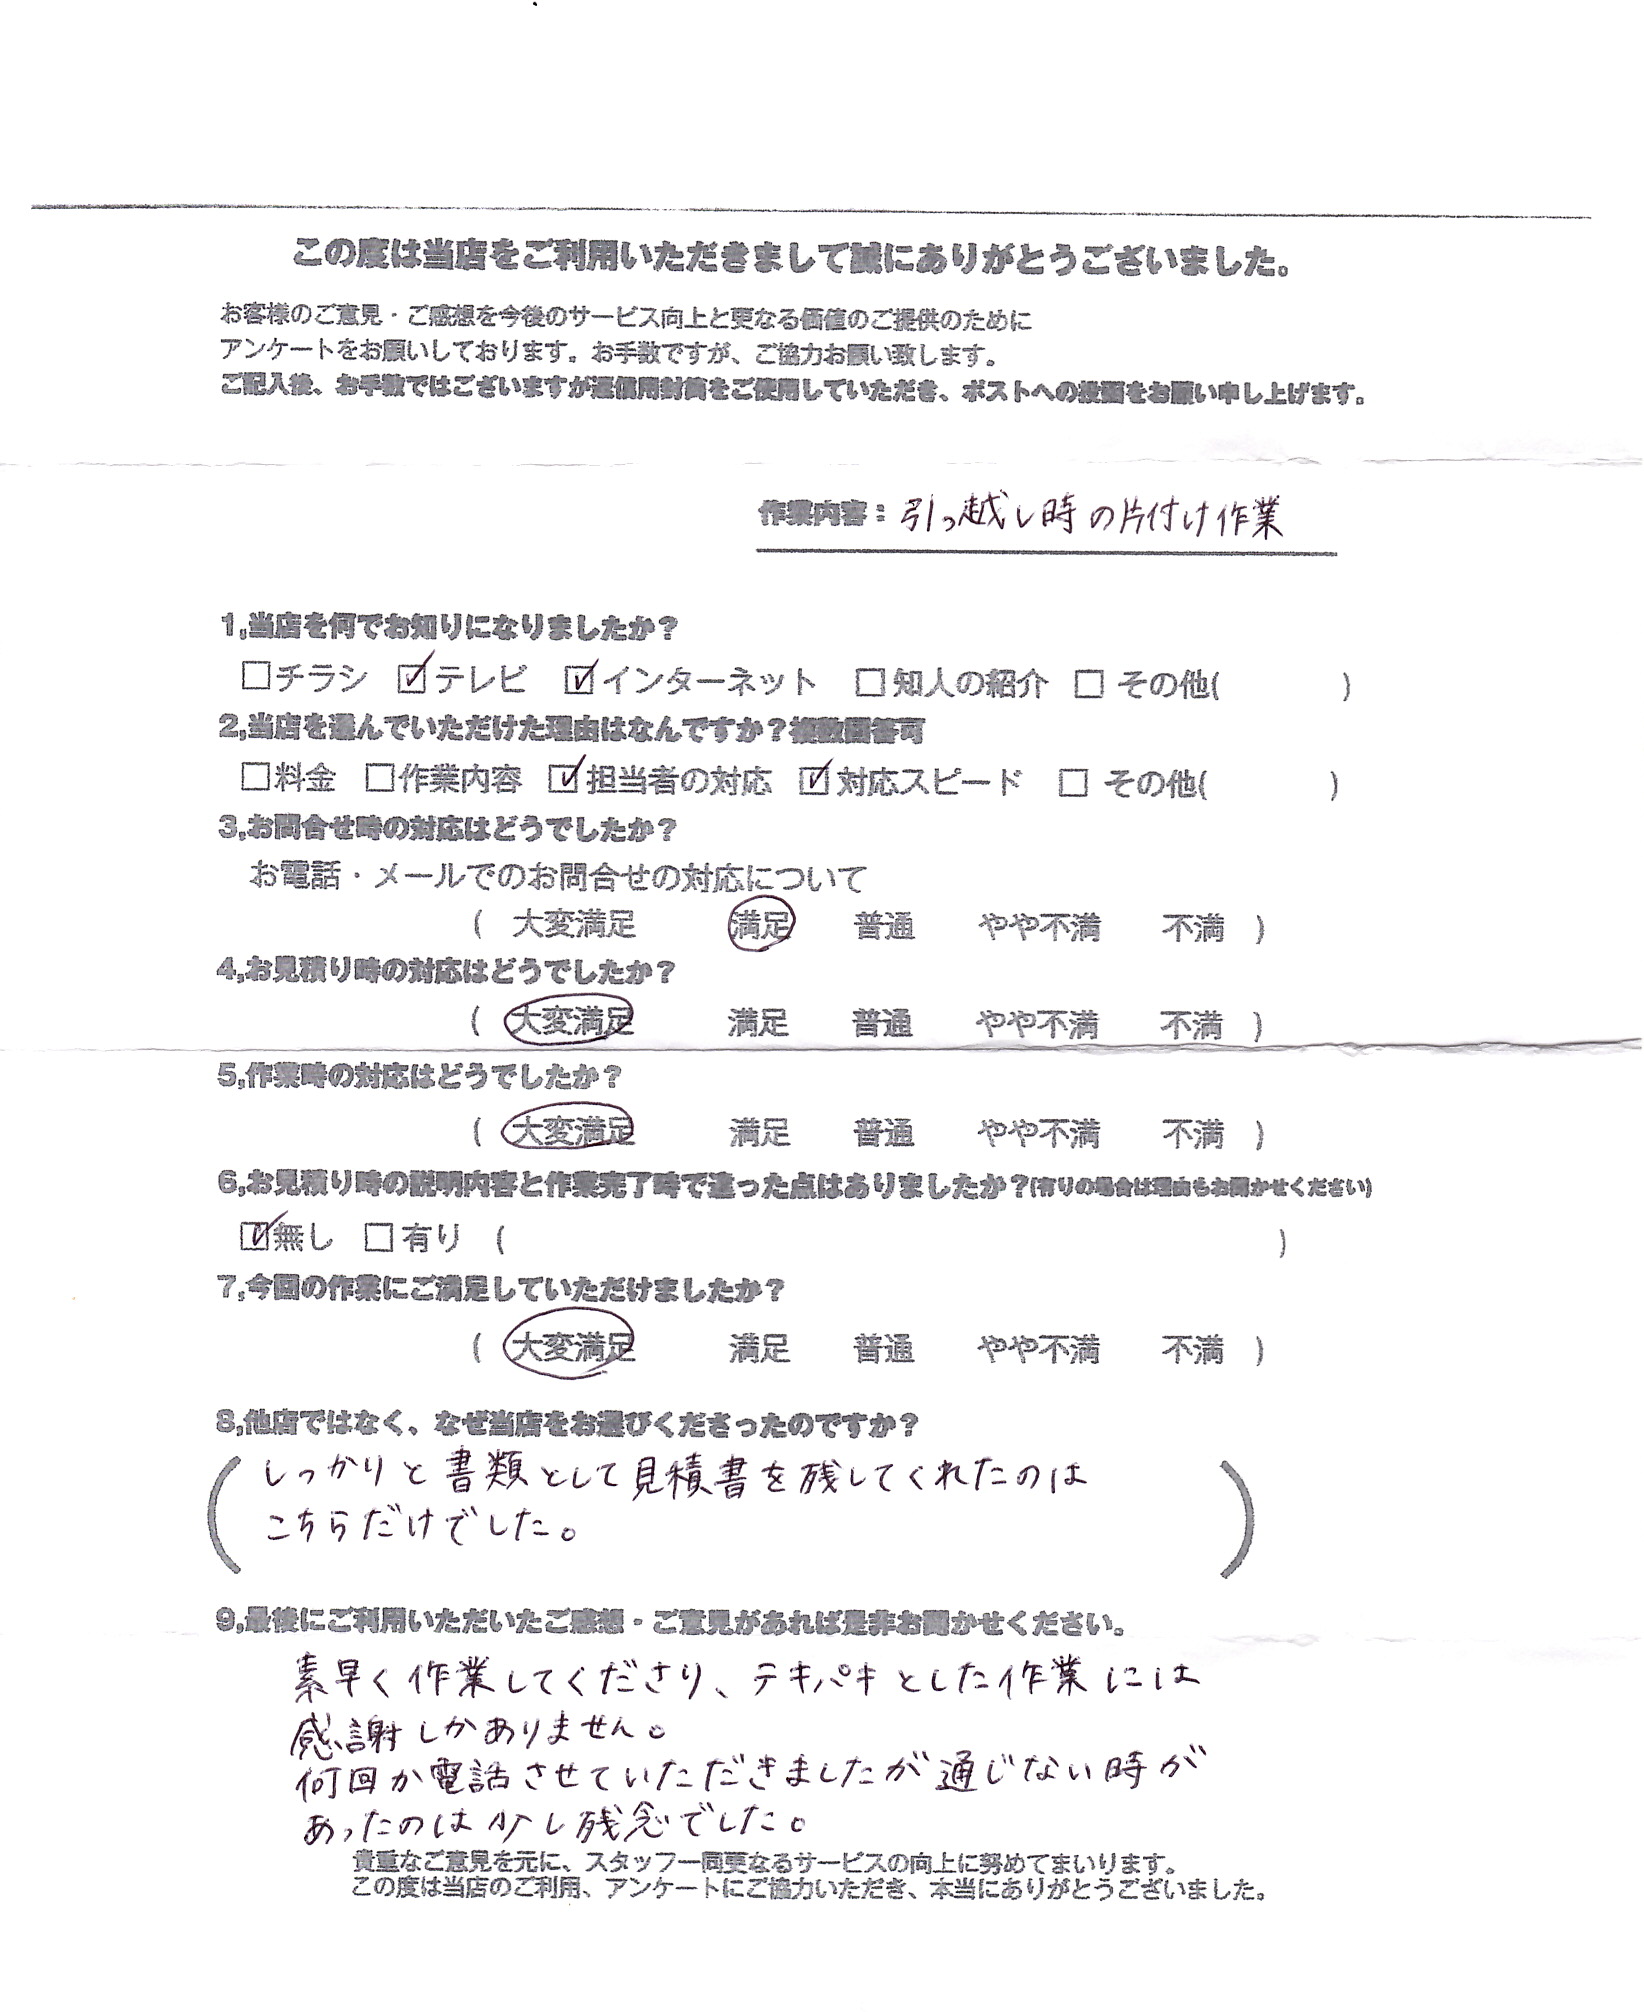 この度は当店をご利用いただきまして誠にありがとうございました。
お客様のご意見・ご感想を今後のサービス向上と更なる価値のご提供のために
アンケートをお願いしております。お手数ですが、ご協力お願い致します。
ご記入後、お手数ではございますが返信用封筒をご使用していただき、ポストへの投函をお願い申し上げます。
作業内容：引っ越し時の片付け作業
1,当店を何でお知りになりましたか？
□チラシ ☑テレビ ☑インターネット □知人の紹介 □その他( )
2,当店を選んでいただけた理由はなんですか？複数回答可
□料金 □作業内容 ☑担当者の対応 ☑対応スピード □その他( )
3,お問合せ時の対応はどうでしたか？
お電話・メールでのお問合せの対応について
( 大変満足 満足 普通 やや不満 不満 )
4,お見積り時の対応はどうでしたか？
( 大変満足 満足 普通 やや不満 不満 )
5,作業時の対応はどうでしたか？
( 大変満足 満足 普通 やや不満 不満 )
6,お見積り時の説明内容と作業完了時で違った点はありましたか？(有りの場合は理由もお聞かせください)
☑無し □有り ( )
7,今回の作業にご満足していただけましたか？
( 大変満足 満足 普通 やや不満 不満 )
8,他店ではなく、なぜ当店をお選びくださったのですか？
(しっかりと書類として見積書を残してくれたのは
こちらだけでした。)
9,最後にご利用いただいたご感想・ご意見があれば是非お聞かせください。
素早く作業してくださり、テキパキとした作業には
感謝しかありません。
何回か電話させていただきましたが通じない時が
あったのは少し残念でした。
貴重なご意見を元に、スタッフ一同更なるサービスの向上に努めてまいります。
この度は当店のご利用、アンケートにご協力いただき、本当にありがとうございました。